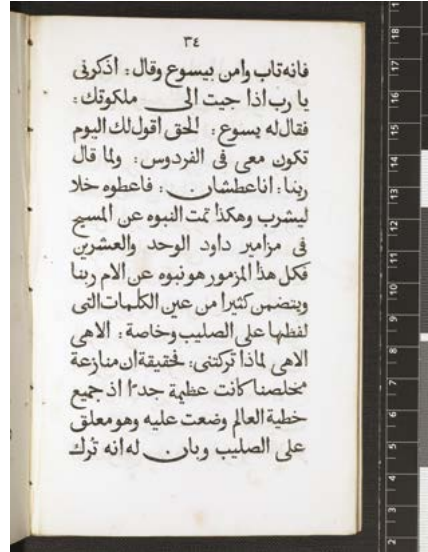 ٣٤
فانه تاب وامن بيسوع وقال : اذكرنى
يا رب اذا جيت الى ملكوتك :
فقال له يسوع : الحق اقول لك اليوم
تكون معى فى الفردوس : ولما قال
ربنا : انا عطشان : فاعطوه خلا
ليشرب وهكذا تمت النبوه عن المسيح
فى مزامير داود الوحد والعشرين
فكل هذا المزمور هو نبوه عن الام ربنا
ويتضمن كثيرا من عين الكلمات التى
لفظها على الصليب وخاصة : الاهى
الاهى لماذا تركتنى : فحقيقة ان منازعة
مخلصنا كانت عظيمة جدًا اذ جميع
خطية العالم وضعت عليه وهو معلق
على الصليب وبان له انه تُرك
18
17
16
15
14
13
12
11
10
9
8
7
6
5
4
3
2